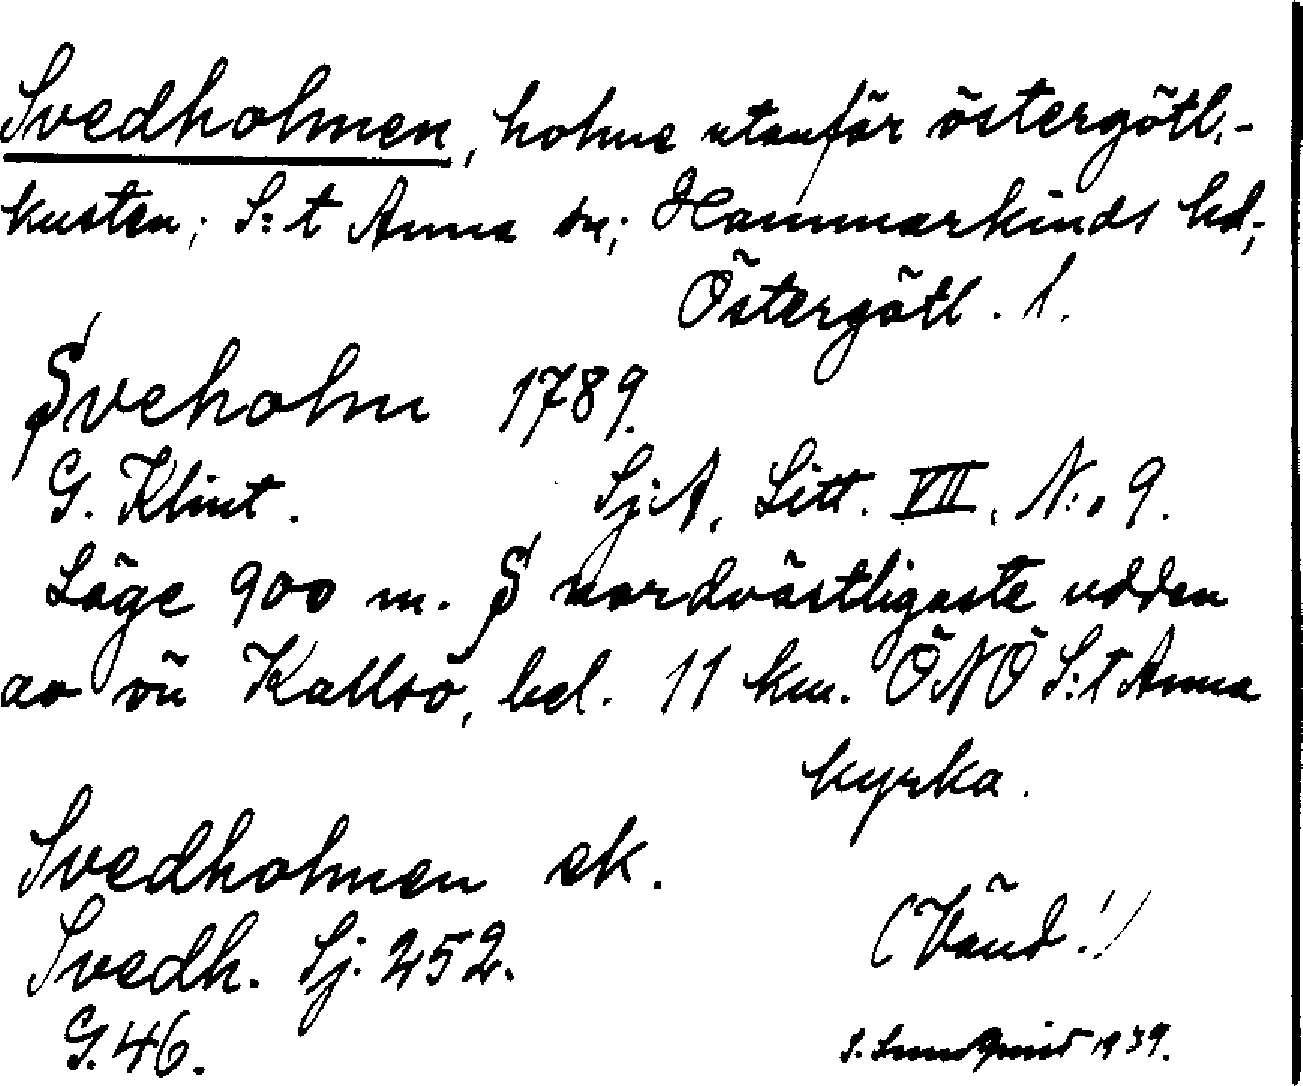 Svedholmen, holme utanför östergötl.-
kusten; S:t Anna sn; Hammarkinds hd;
Östergötl. l.
Sveholm 1789.
G. Klint. Sj:A, Litt. VII, N:o 9.
Läge 900 m. S nordvästligaste udden
av ön Kallsö, bel. 11 km. ÖNÖ S:t Anna
kyrka.
Svedholmen ek.
Svedh. Sj. 252.
(Vänd!)
G. 46.
S. Lundquist 1939.